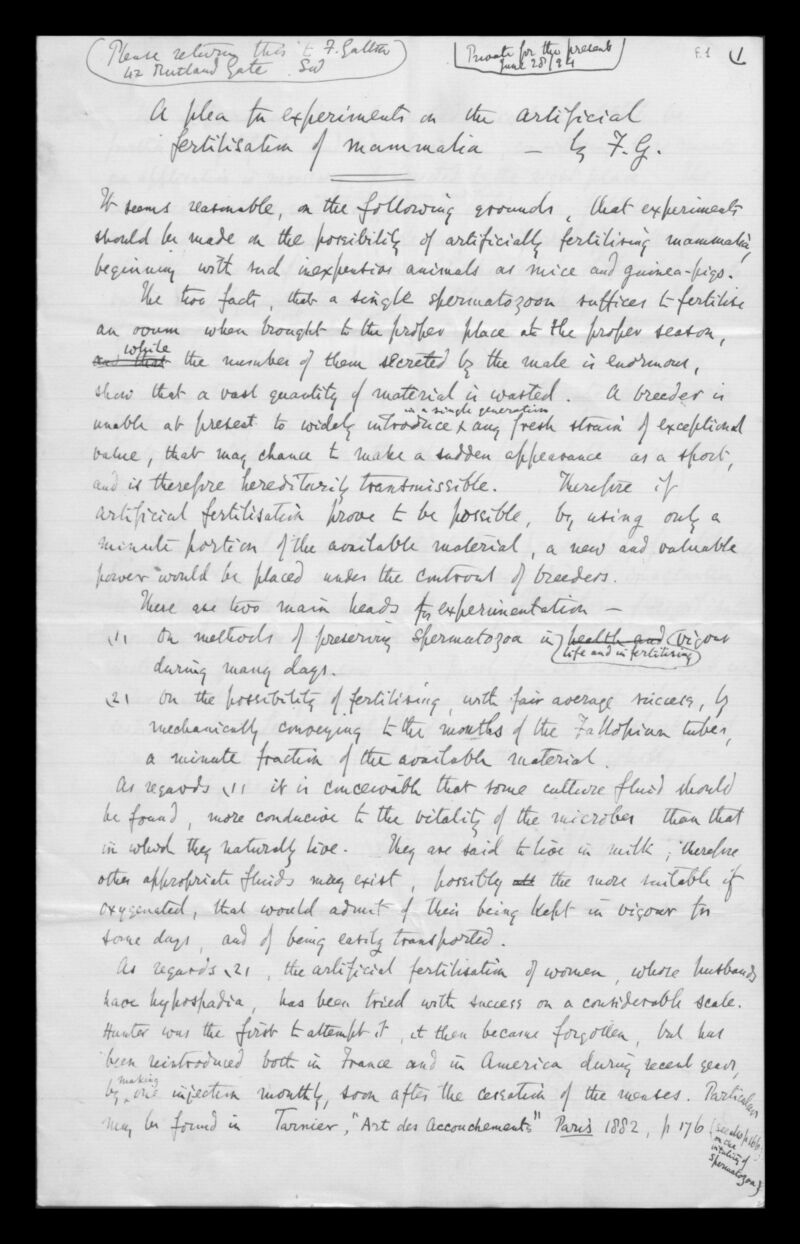 (Please return this to F. Galton
42 Rutland Gate SW)
Private for the present
June 28/94
F. 1
1
A plea for experiments on the artificial
fertilisation of mammalia — by F.G.
It seems reasonable, on the following grounds, that experiments
should be made on the possibility of artificially fertilising mammalia,
beginning with such inexpensive animals as mice and guinea-pigs.
The two facts, that a single spermatozoon suffices to fertilise
an ovum when brought to the proper place at the proper season,
and that while the number of them secreted by the male is enormous,
show that a vast quantity of material is wasted. A breeder is
in a single generation
unable at present to widely introduce any fresh strain of exceptional
value, that may chance to make a sudden appearance as a sport,
and is therefore hereditarily transmissible. Therefore if
artificial fertilisation prove to be possible, by using only a
minute portion of the available material, a new and valuable
power would be placed under the controul of breeders.
There are two main heads for experimentation —
(1) On methods of preserving spermatozoa in health and vigour
life and in fertilising
during many days.
(2) On the possibility of fertilising, with fair average success, by
mechanically conveying to the mouths of the Fallopian tubes,
a minute fraction of the available material.
As regards (1) it is conceivable that some culture fluid should
be found, more conducive to the vitality of the microbes than that
in which they naturally live. They are said to live in milk; therefore
other appropriate fluids may exist, possibly all the more suitable if
oxygenated, that would admit of their being kept in vigour for
some days, and of being easily transported.
As regards (2), the artificial fertilisation of women, whose husbands
have hypospadia, has been tried with success on a considerable scale.
Hunter was the first to attempt it, it then became forgotten, but has
been reintroduced both in France and in America during recent years,
by making one injection monthly, soon after the cessation of the menses. Particulars
may be found in Tarnier, "Art des Accouchements" Paris 1882, p 176 (see also p 166
on the
vitality of
spermatozoa)